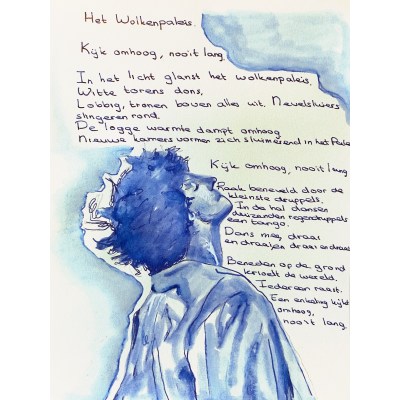 Het Wolkenpaleis.
Kijk omhoog, nooit lang.
In het licht glanst het wolkenpaleis.
Witte torens dons,
Lobbig, tronen boven alles uit. Nevelsliers
slingeren rond.
De logge warmte dampt omhoog
Nieuwe kamers vormen zich sluimerend in het Paleis
Kijk omhoog, nooit lang
Raak beneveld door de
kleinste druppels.
In de hal dansen
duizenden regendruppels
een tango.
Dans mee, draai
en draai en draai en draai
Beneden op de grond
krioelt de wereld.
Iedereen raast.
Een enkeling kijkt
omhoog,
nooit lang.